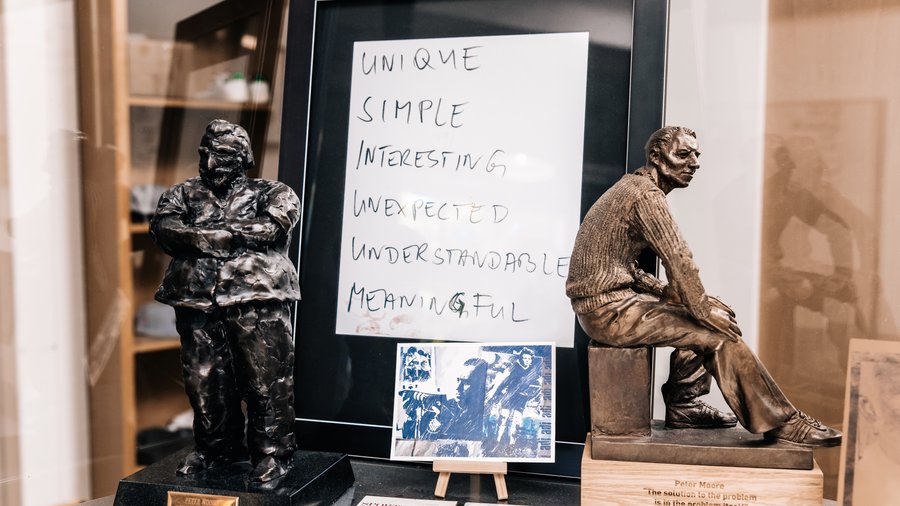 UNIQUE
SIMPLE
INTERESTING
UNEXPECTED
UNDERSTANDABLE
MEANINGFUL
PETER
Peter Moore
"The solution to the problem
is in the problem itself"